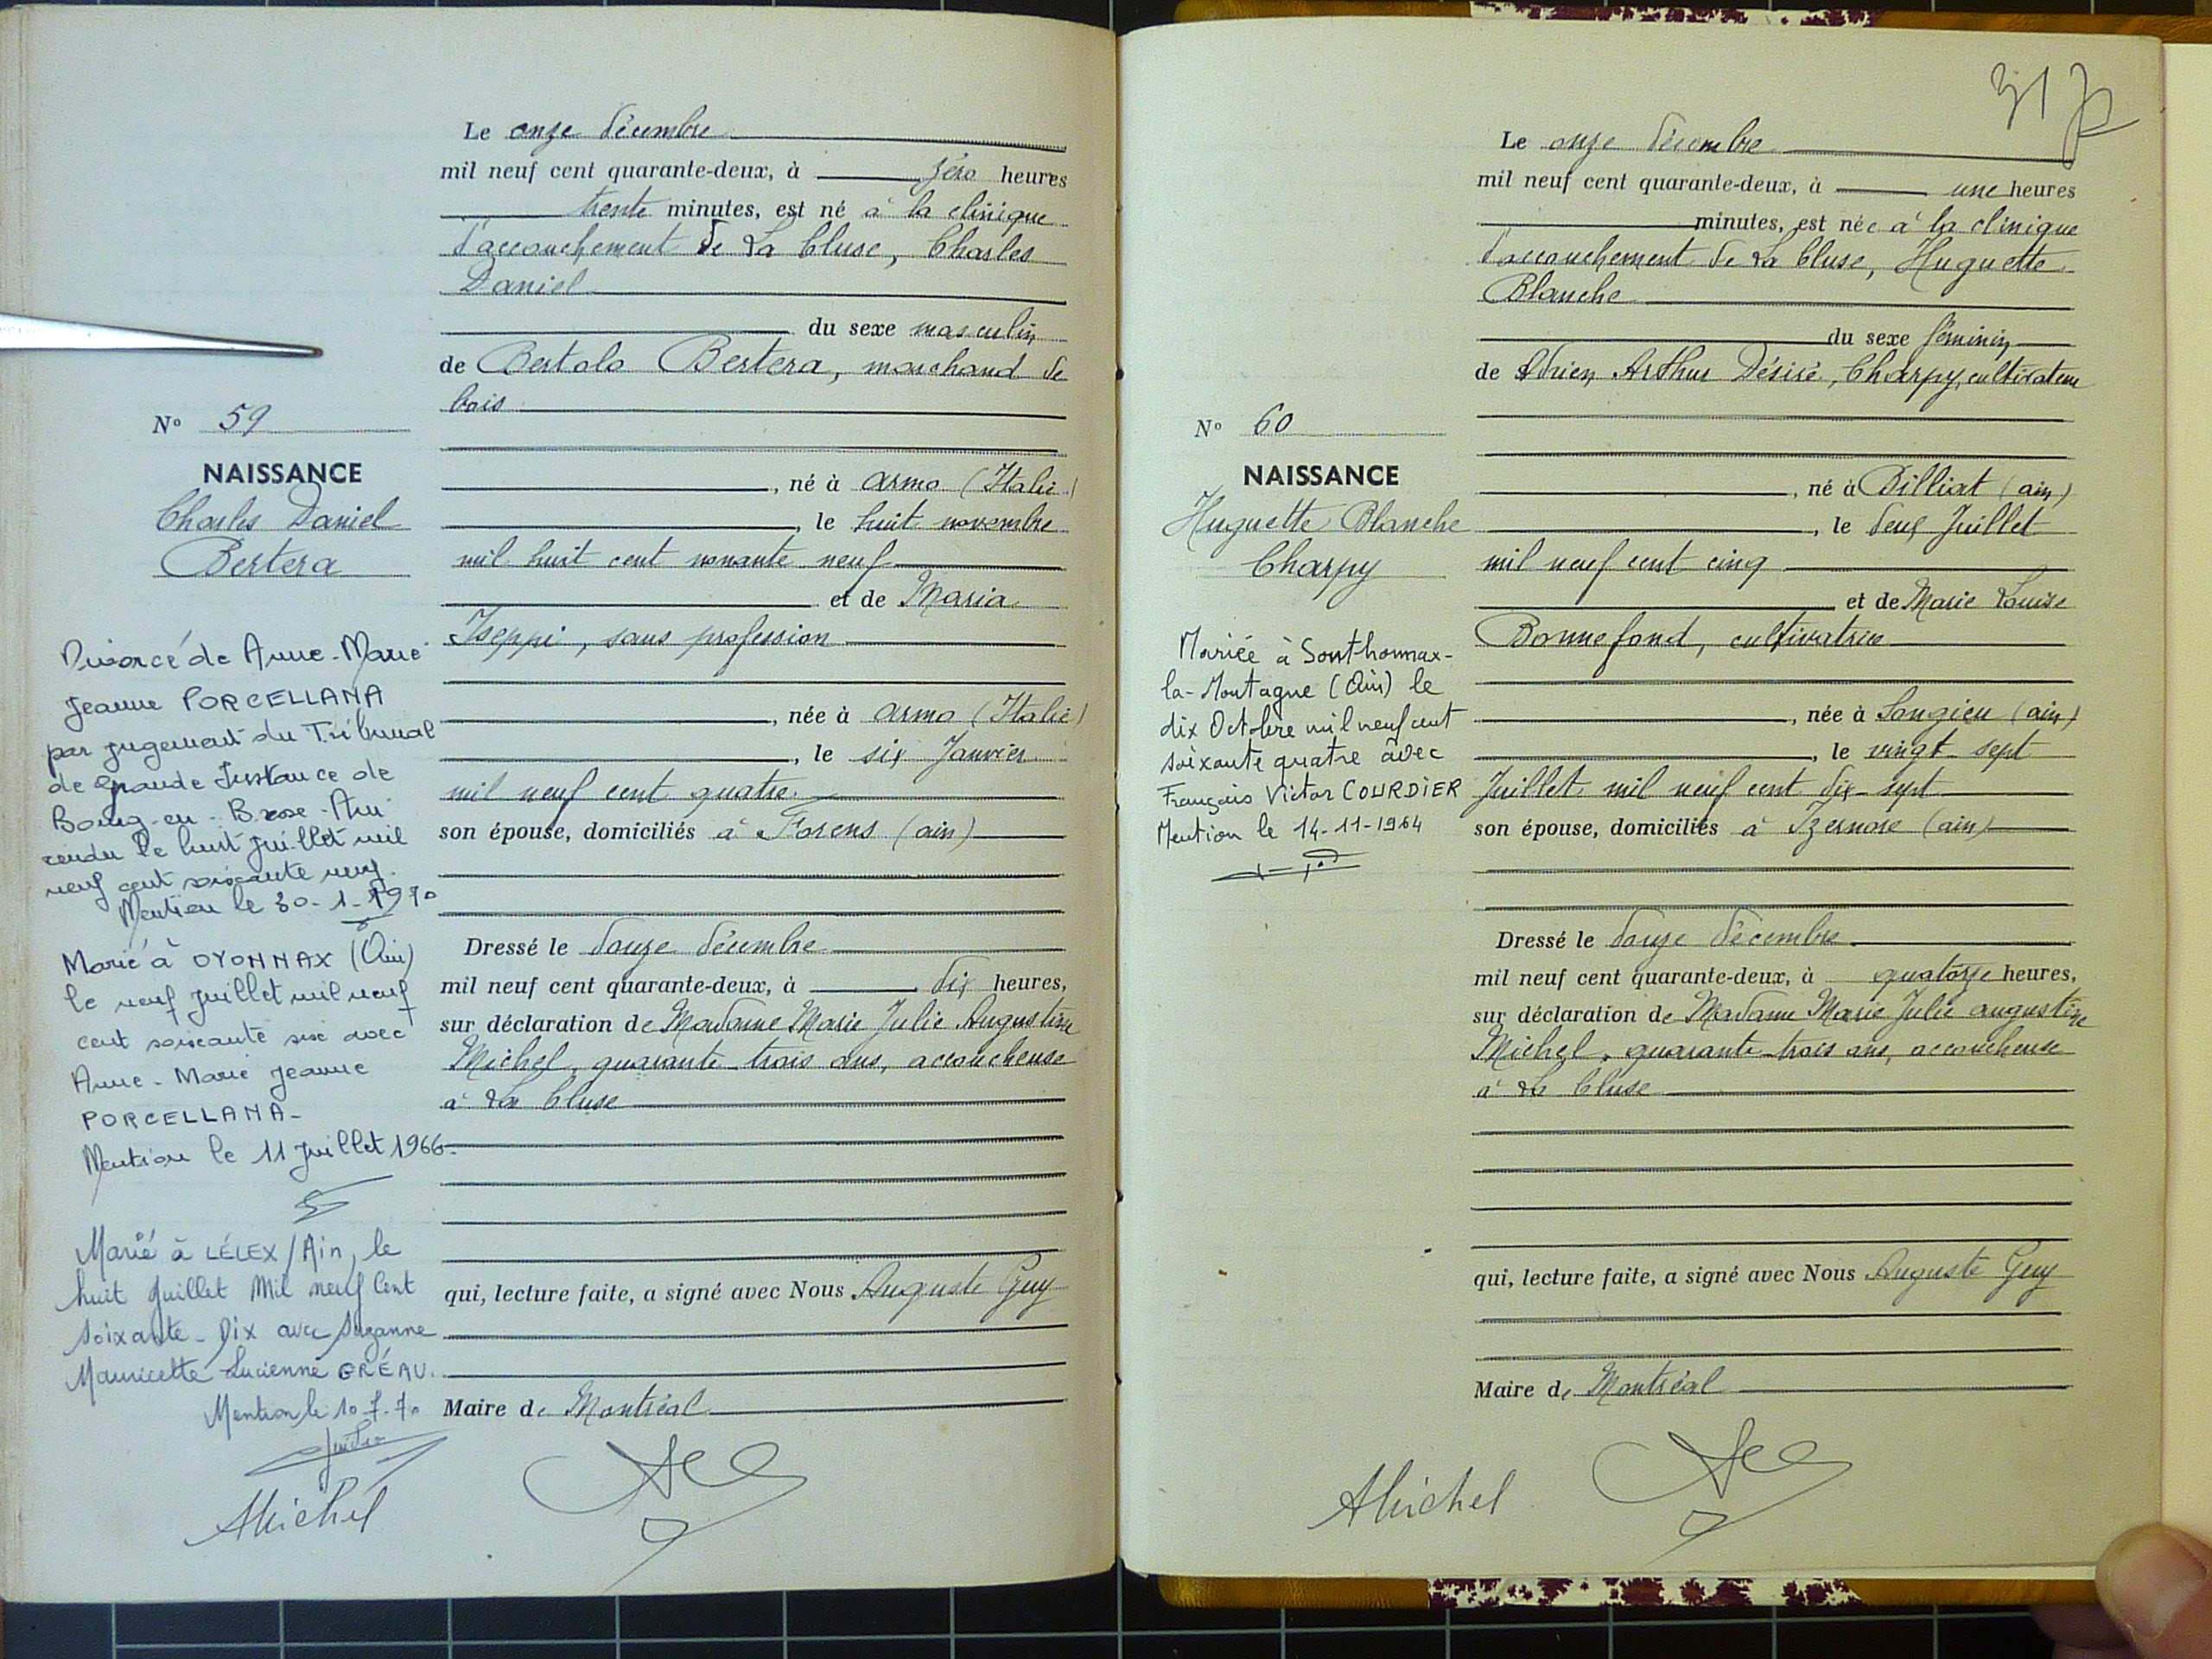 Le onze décembre
mil neuf cent quarante-deux, à zéro heures
trente minutes, est né à la clinique
d'accouchement de La Cluse, Charles
Daniel
du sexe masculin
de Bertolo Bertera, marchand de
bois
, né à Armo (Italie)
, le huit novembre
mil huit cent nonante neuf
et de Maria
Iseppi, sans profession
, née à Armo (Italie)
, le six Janvier
mil neuf cent quatre.
son épouse, domiciliés à Forens (ain)
Dressé le douze décembre
mil neuf cent quarante-deux, à dix heures,
sur déclaration de Madame Marie Julie Augustine
Michel, quarante-trois ans, accoucheuse
à La Cluse
qui, lecture faite, a signé avec Nous Auguste Guy
Maire de Montréal
N° 59
NAISSANCE
Charles Daniel
Bertera
Divorcé de Anne-Marie
Jeanne PORCELLANA
par jugement du Tribunal
de Grande Instance de
Bourg-en-Bresse-Ain
rendu le huit juillet mil
neuf cent soixante neuf.
Mention le 30-1-1970
Marié à OYONNAX (Ain)
le neuf juillet mil neuf
cent soixante six avec
Anne-Marie Jeanne
PORCELLANA-
Mention le 11 juillet 1966-
Marié à LÉLEX/Ain, le
huit Juillet Mil neuf Cent
Soixante-Dix avec Suzanne
Mauricette Lucienne GRÉAU.
Mention le 10.7.70
AMichel
31
Le onze décembre
mil neuf cent quarante-deux, à une heures
minutes, est née à la clinique
d'accouchement de La Cluse, Huguette
Blanche
du sexe féminin
de Adrien Arthur Désiré, Charpy, cultivateur
, né à Billiat (ain)
, le deux Juillet
mil neuf cent cinq
et de Marie Louise
Bonnefond, cultivatrice
, née à Songieu (ain)
, le vingt-sept
Juillet mil neuf cent dix-sept
son épouse, domiciliés à Izernore (ain)
Dressé le douze décembre
mil neuf cent quarante-deux, à quatorze heures,
sur déclaration de Madame Marie Julie augustine
Michel, quarante-trois ans, accoucheuse
à La Cluse
qui, lecture faite, a signé avec Nous Auguste Guy
Maire de Montréal
N° 60
NAISSANCE
Huguette Blanche
Charpy
Mariée à Sonthonnax-
la-Montagne (Ain) le
dix Octobre mil neuf cent
soixante quatre avec
François Victor COURDIER
Mention le 14-11-1964
AMichel